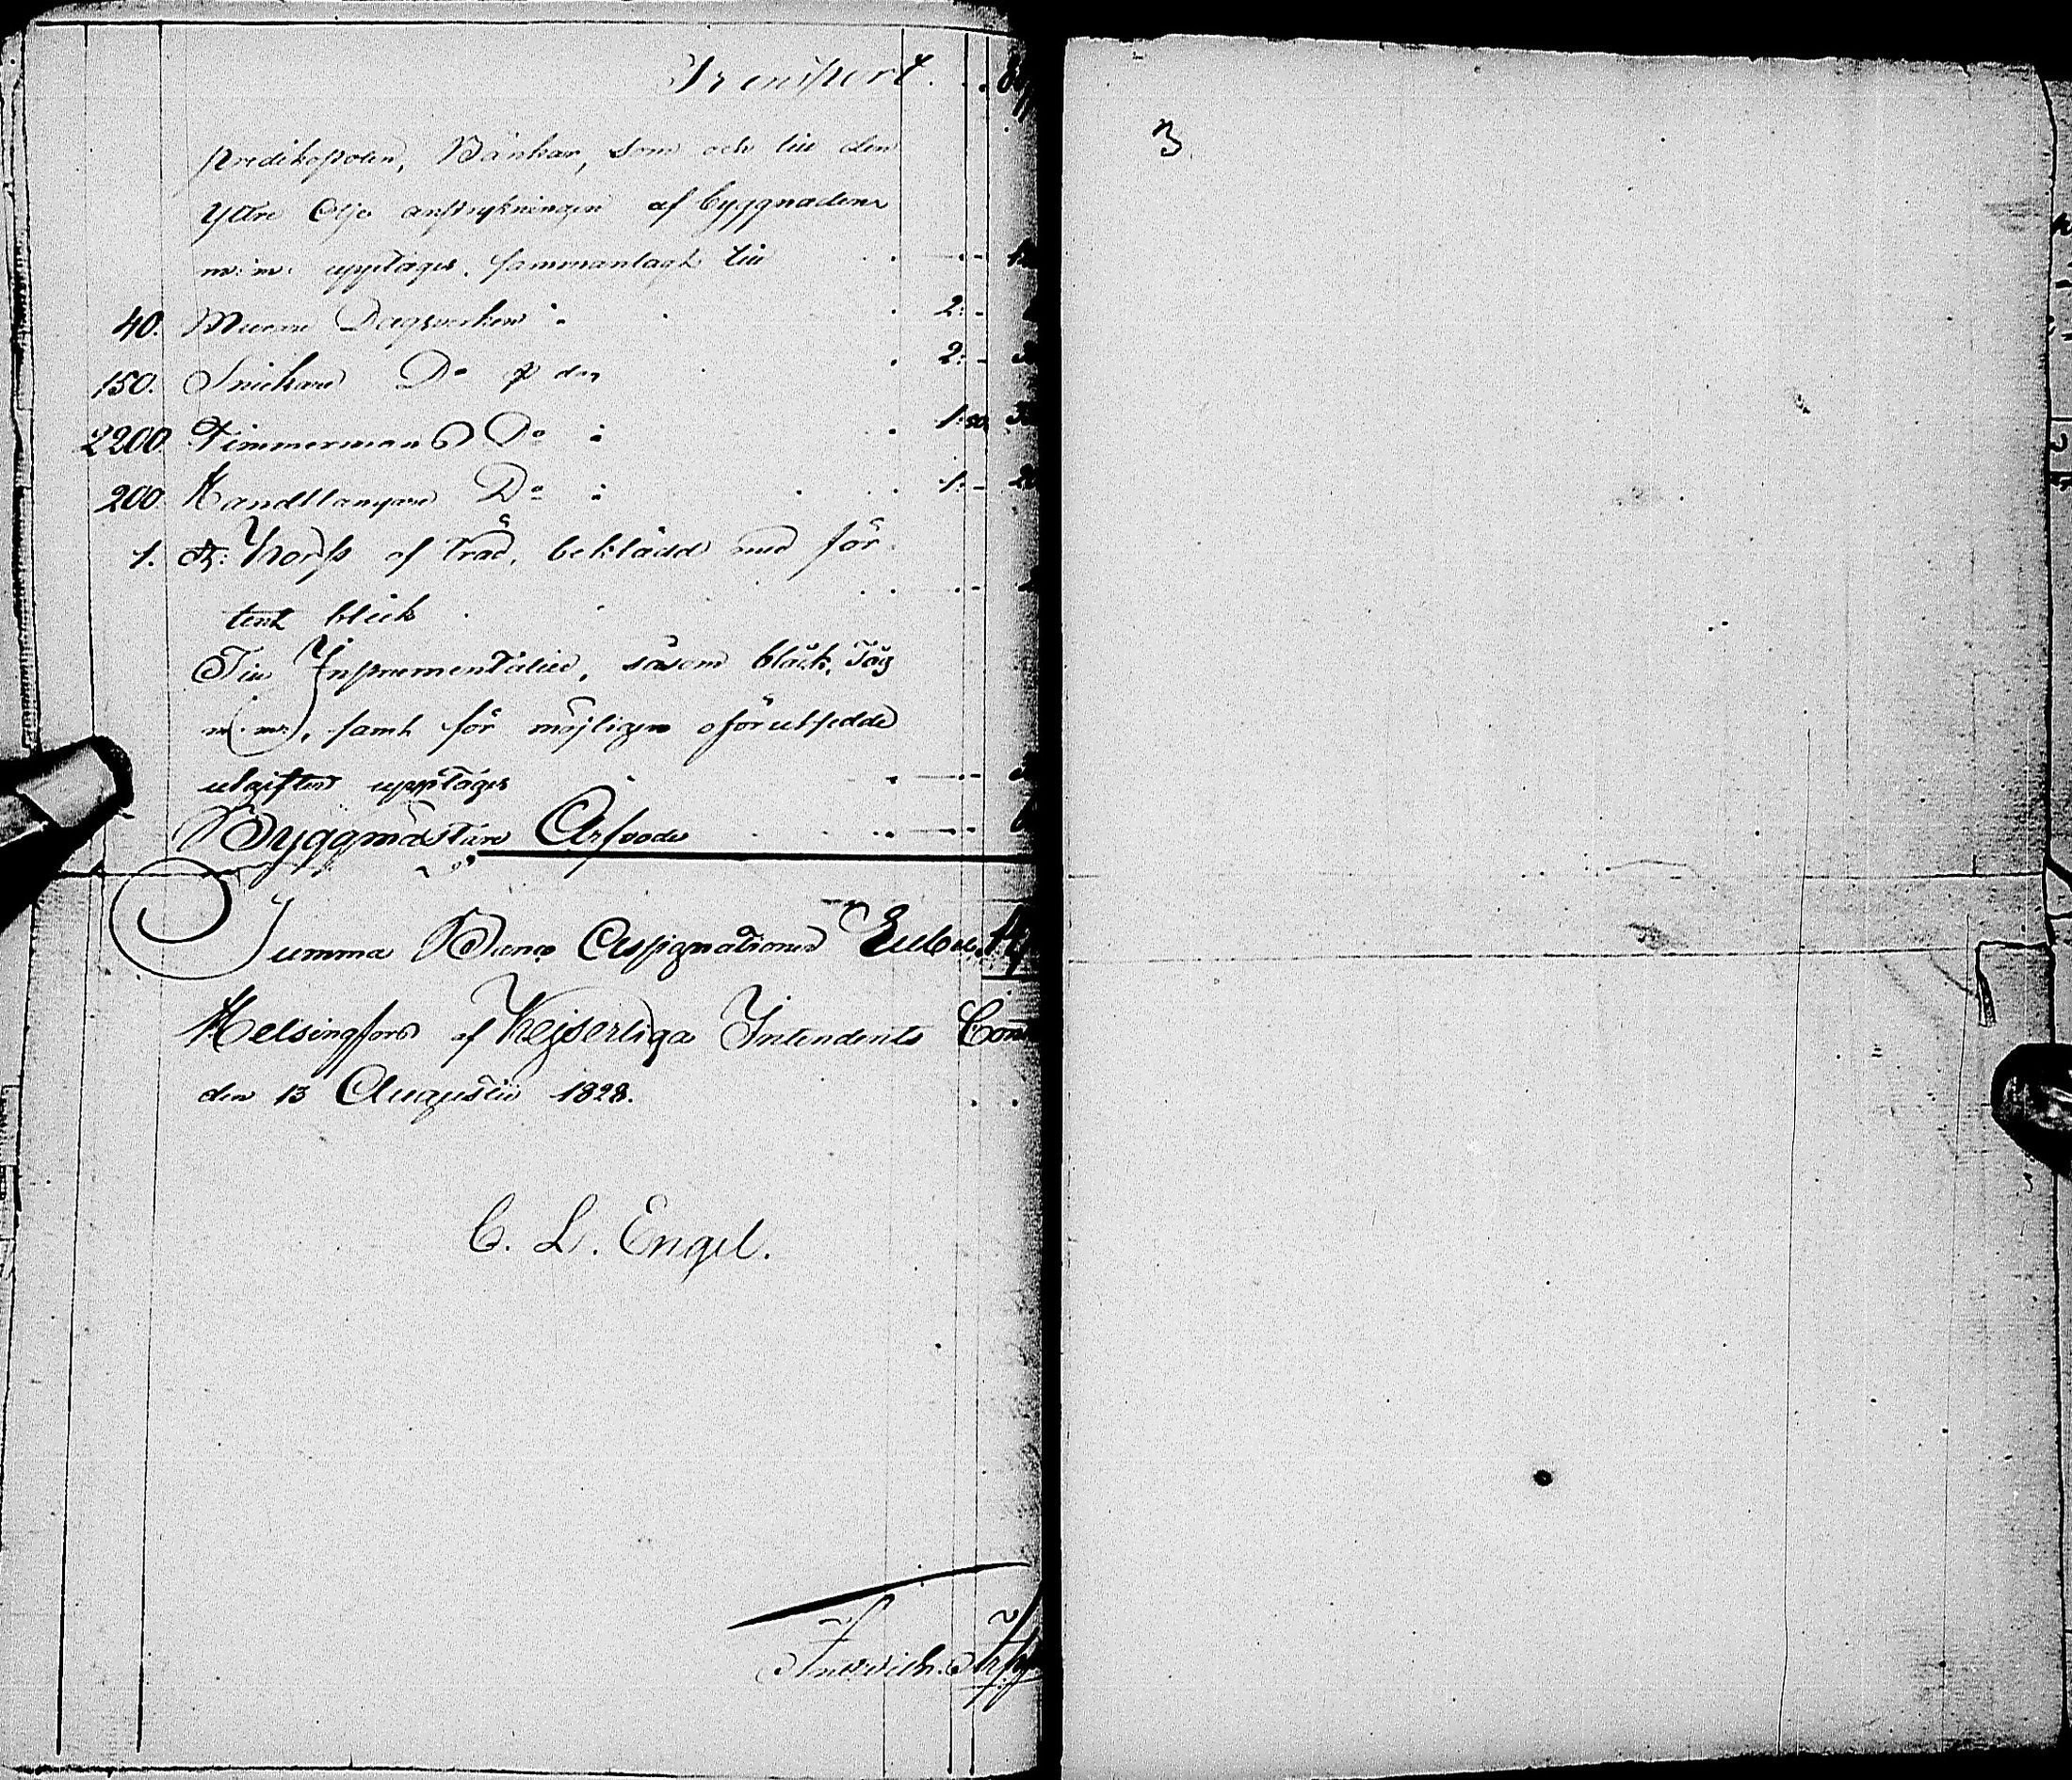 Transport
predikstolen, Bänkar, som och till den
yttre Olje anstrykningen af byggnaden
m: m: upptages sammanlagt till
40. Murare Dagsverken 2: -
150. Snickare Do 2: -
2200. Timmermans Do 1: 50.
200. Handtlangare Do 1: -
1. st: Kors af träd, beklädd med för
tent bleck
Till Instrumentalier, såsom bläck, Tåg
m: m:, samt för möjligen oförutsedde
utgifter upptages
Byggmästare Arfvode
Summa Banco Assignationer Rubel
Helsingfors af Kejserliga Intendents
den 13 Augustii 1828.
C. L. Engel.
3